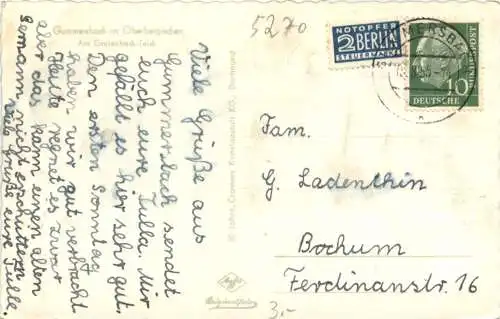 Gummersbach im Oberbergischen
Am Grotenbach-Teich
5270
Viele Grüße aus
Gummersbach sendet
euch eure Tulla. Mir
gefällt es hier sehr gut.
Den ersten Sonntag
haben wir gut verbracht
Heute regnet es zwar
aber das kann einen alten
Gemann nicht erschüttern
Viele Grüße eure Tulle
Cramers Kunstanstalt KG., Dortmund
Agfa
NOTOPFER
2 BERLIN
STEUERMARKE
DEUTSCHE BUNDESPOST
10
Fam.
G. Ladenthin
Bochum
Ferdinanstr. 16
3,-